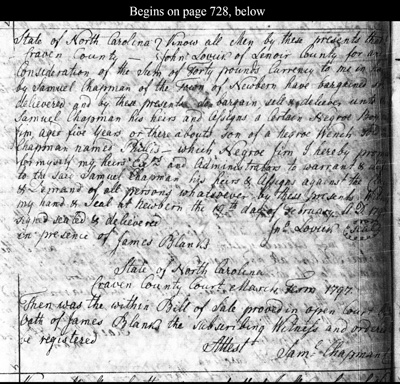 Begins on page 728, below
State of North Carolina } Know all Men by these presents that
Craven County — John Lovick of Lenoir County for and
Consideration of the Sum of forty pounds Currency to me in
by Samuel Chapman of the Town of Newbern have bargained
delivered and by these presents do bargain sell & deliver unto
Samuel Chapman his heirs and Assigns a Certain Negroe Boy
Jim, ager five Years or there abouts son of a negroe Wench
Chapman named Phillis — which Negroe Jim I hereby
for myself my heirs and Administrators to warrant &
to the Said Samuel Chapman his heirs & Assigns against the
& Demand of all persons whatsoever by these presents
my hand & Seal at Newbern the day of February
signed sealed & delivered Jno. Lovick Seal
in presence of James Blanks
State of North Carolina
Craven County Court March Term 1797.
Then was the within Bill of Sale proved in open Court
Oath of James Blanks the Subscribing Witness and
be registered
Attest Saml. Chapman